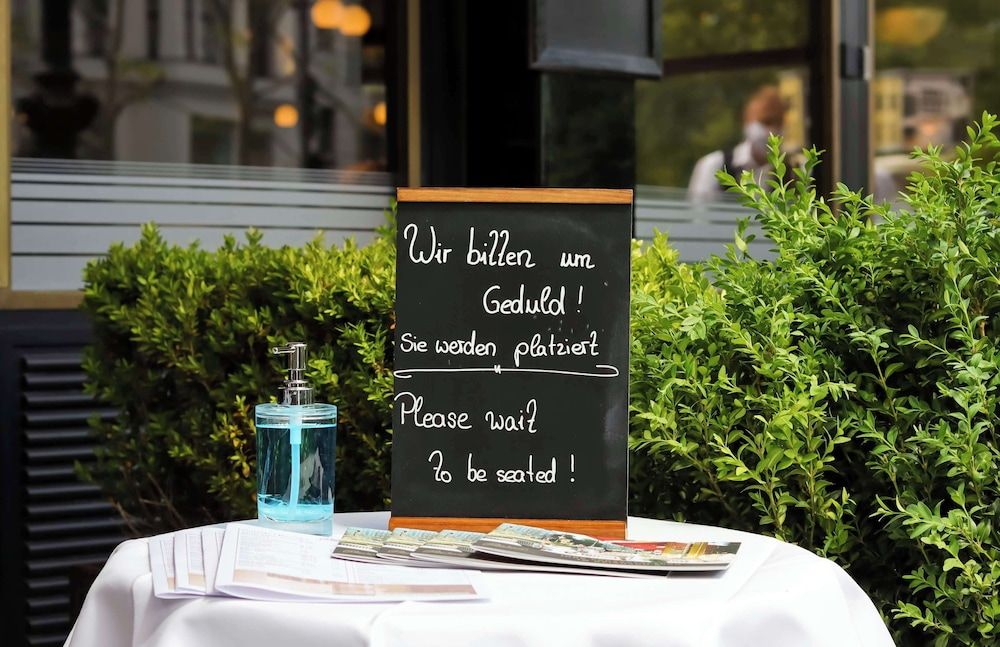 Wir bitten um
Geduld!
Sie werden platziert
Please wait
to be seated!